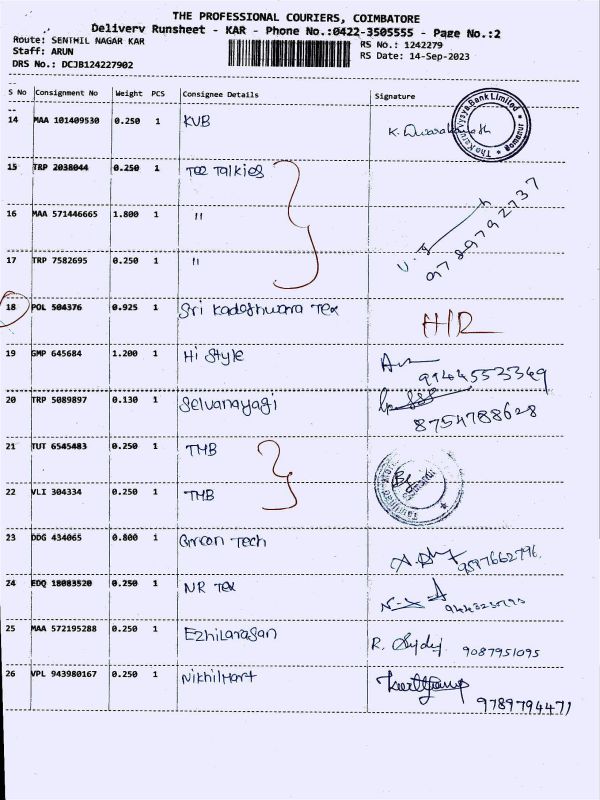 THE PROFESSIONAL COURIERS, COIMBATORE
Delivery Runsheet - KAR - Phone No.:0422-3505555 - Page No.:2
Route: SENTHIL NAGAR KAR
RS No.: 1242279
Staff: ARUN
RS Date: 14-Sep-2023
DRS No.: DCJB124227902
S No Consignment No Weight PCS Consignee Details Signature
14 MAA 101409530 0.250 1 KVB
The Karur Vysya Bank Limited * Somanur *
15 TRP 2038044 0.250 1 Tez Talkies
16 MAA 571446665 1.800 1 "
9789792737
17 TRP 7582695 0.250 1 "
18 POL 504376 0.925 1 Sri Kadeshwara Tex H/R
19 GMP 645684 1.200 1 Hi Style
9144553349
20 TRP 5089897 0.130 1 Selvanayagi
8754788628
21 TUT 6545483 0.250 1 TMB
22 VLI 304334 0.250 1 TMB
23 DDG 434065 0.800 1 Green Tech
9597662796
24 EDQ 18083520 0.250 1 NR Tex
25 MAA 572195288 0.250 1 Ezhilarasan
9087951095
26 VPL 943980167 0.250 1 Nikhilmart
9789794471